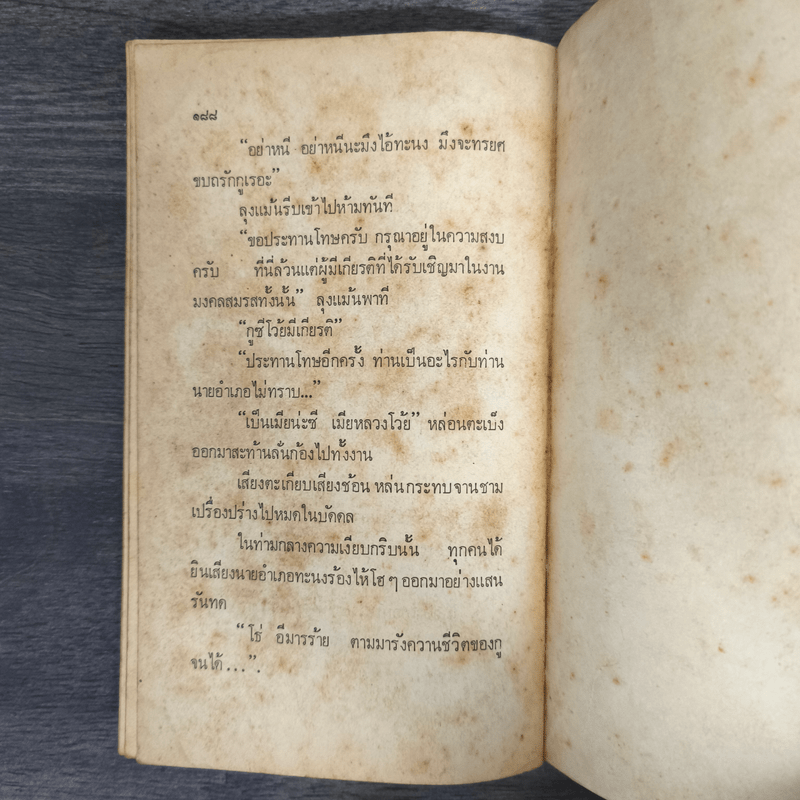 ๑๘๘
“อย่าหนี อย่าหนีนะมึงไอ้ทะนง มึงจะทรยศ
ขบถรักกูเรอะ”
ลุงแม้นรีบเข้าไปห้ามทันที
“ขอประทานโทษครับ กรุณาอยู่ในความสงบ
ครับ ที่นี่ล้วนแต่ผู้มีเกียรติที่ได้รับเชิญมาในงาน
มงคลสมรสทั้งนั้น” ลุงแม้นพาที
“กูซีโว้ยมีเกียรติ”
“ประทานโทษอีกครั้ง ท่านเป็นอะไรกับท่าน
นายอำเภอไม่ทราบ...”
“เป็นเมียน่ะซี เมียหลวงโว้ย” หล่อนตะเบ็ง
ออกมาสะท้านลั่นก้องไปทั้งงาน
เสียงตะเกียบเสียงช้อน หล่นกระทบจานชาม
เปรื่องปร่างไปหมดในบัดดล
ในท่ามกลางความเงียบกริบนั้น ทุกคนได้
ยินเสียงนายอำเภอทะนงร้องไห้โฮ ๆ ออกมาอย่างแสน
รันทด
“โธ่ อีมารร้าย ตามมารังควานชีวิตของกู
จนได้...”.